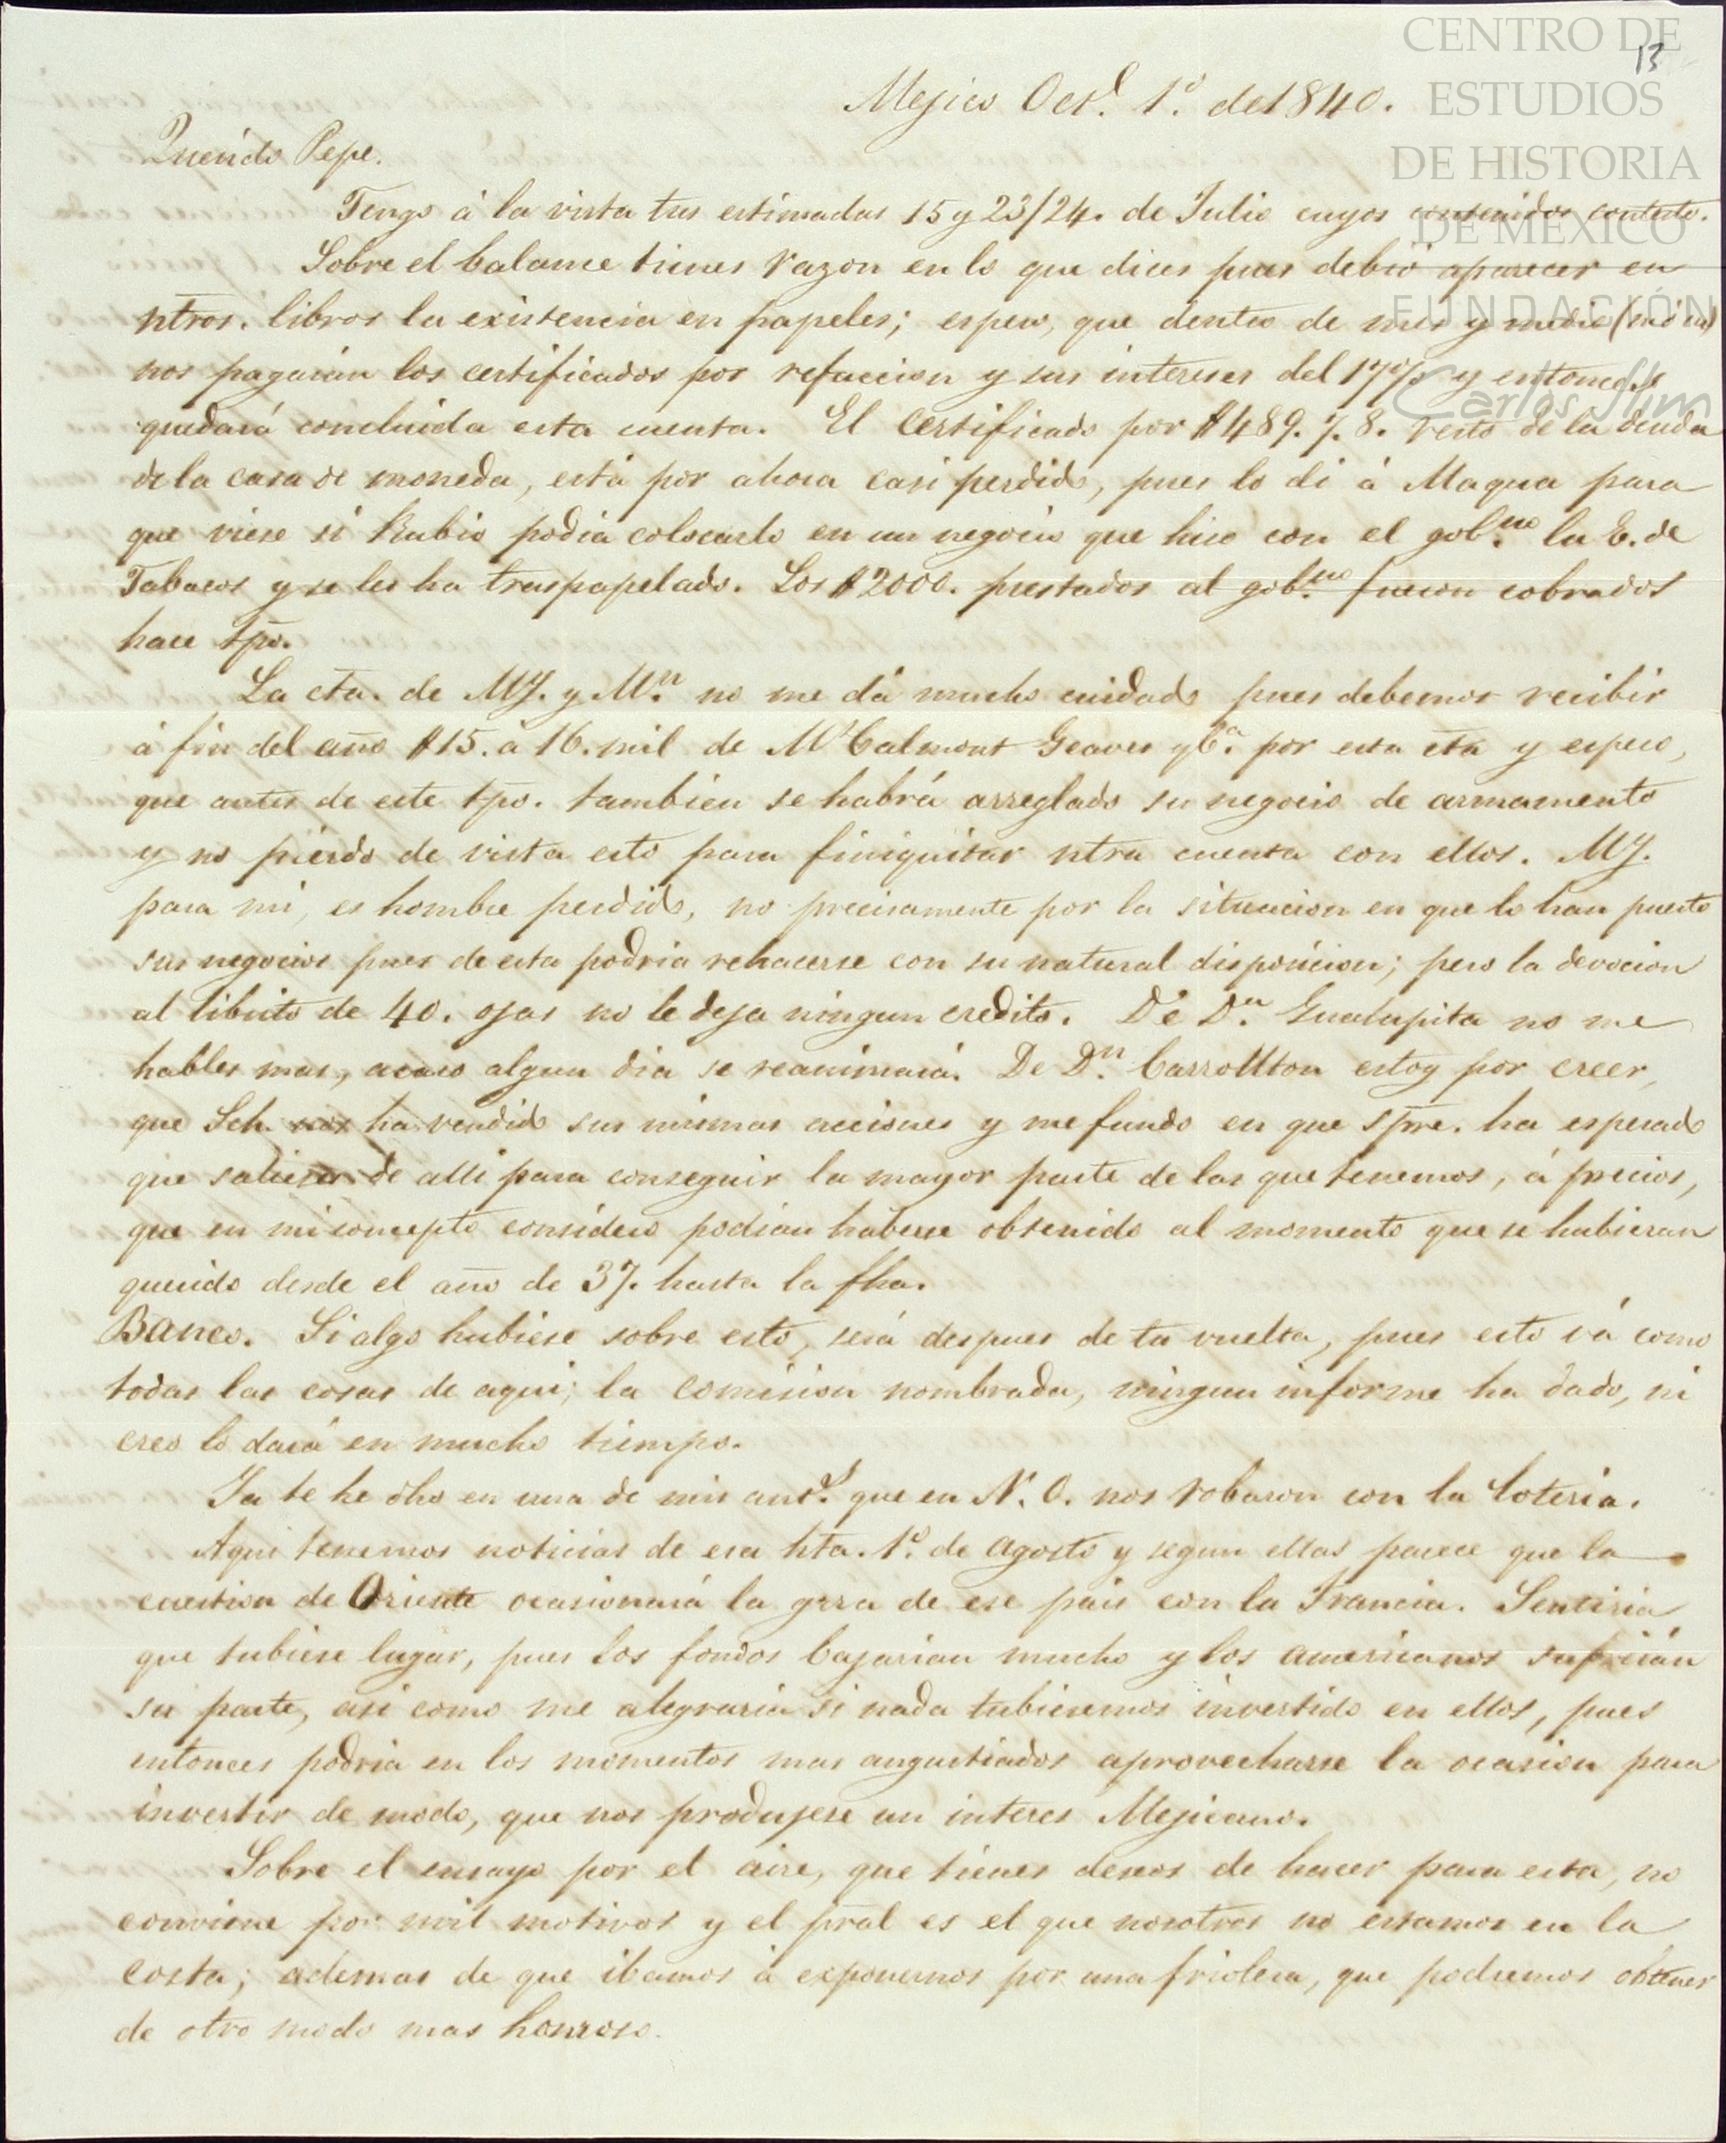 CENTRO DE
ESTUDIOS
DE HISTORIA
DE MÉXICO
FUNDACIÓN
Carlos Slim
13
Mejico Oct.e 1.o de 1840.
Querido Pepe.
Tengo á la vista tus estimadas 15 y 23/24. de Julio cuyos contenidos contesto.
Sobre el balance tienes razon en lo que dices pues debió aparecer en
ntros. libros la existencia en papeles; espero, que dentro de mes y medio
nos pagarán los certificados por refaccion y sus intereses del 17% y entonces
quedará concluida esta cuenta. El certificado por $489.7.8. resto de la deuda
de la casa de moneda, está por ahora casi perdido, pues lo di á Maqua para
que viese si Rubio podia colocarlo en un negocio que hizo con el gob.no la E. de
Tabacos y se les ha traspapelado. Los $2000. prestados al gob.no fueron cobrados
hace tpo.
La cta. de MJ. y M.n no me dá mucho cuidado pues debemos recibir
á fin del año $15. á 16. mil de McCalmont Geaves y C.a por esta cta y espero,
que antes de este tpo. tambien se habrá arreglado su negocio de armamento
y no pierdo de vista esto para finiquitar ntra cuenta con ellos. MJ.
para mi, es hombre perdido, no precisamente por la situacion en que lo han puesto
sus negocios pues de esta podria rehacerse con su natural disposicion; pero la devocion
al librito de 40. ojas no le deja ningun credito. De D.a Guadupita no me
hables mas, acaso algun dia se reanimará. De D.n Carrollton estoy por creer,
que Sch. nos ha vendido sus mismas acciones y me fundo en que spre. ha esperado
que de alli para conseguir la mayor parte de las que tenemos, á precios,
que en mi concepto considero podian haberse obtenido al momento que se hubieran
querido desde el año de 37. hasta la fha.
Banco. Si algo hubiese sobre esto, será despues de tu vuelta, pues esto vá como
todas las cosas de aqui; la comision nombrada, ningun informe ha dado, ni
creo lo dará en mucho tiempo.
Ya te he dho en una de mis ant.s que en N. O. nos robaron con la loteria.
Aqui tenemos noticias de esa hta. 1.o de Agosto y segun ellas parece que la
cuestion de Oriente ocasionará la grra de ese pais con la Francia. Sentiria
que tubiese lugar, pues los fondos bajarian mucho y los americanos sufririan
su parte, asi como me alegraria si nada tubiesemos invertido en ellos, pues
entonces podria en los momentos mas angustiados aprovecharse la ocasion para
invertir de modo, que nos produjese un interes Mejicano.
Sobre el ensayo por el aire, que tienes deseos de hacer para esta, no
conviene por mil motivos y el pral es el que nosotros no estamos en la
costa; ademas de que ibamos á exponernos por una friolera, que podremos obtener
de otro modo mas honroso.